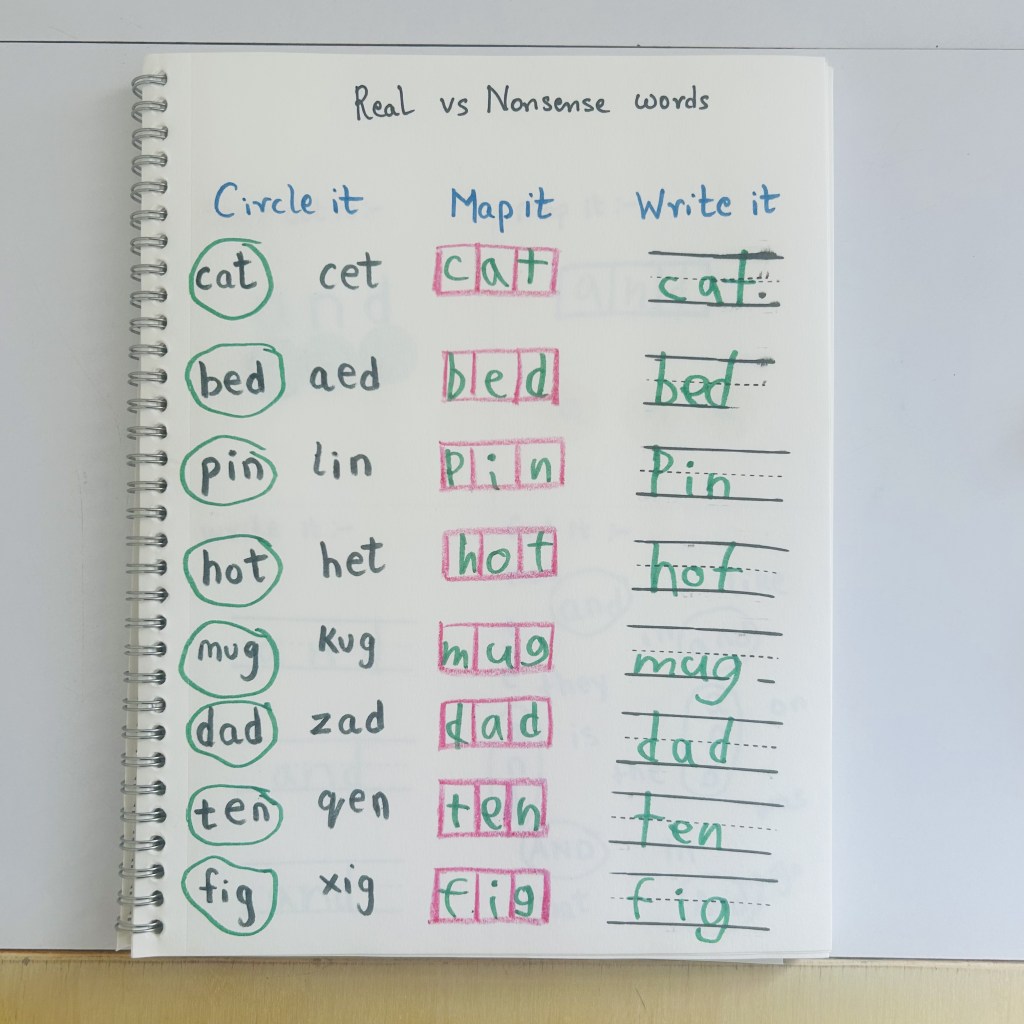 Real vs Nonsense words
Circle it Map it Write it
cat cet cat cat.
bed aed bed bed
pin lin Pin Pin
hot het hot hot
mug kug mug mug
dad zad dad dad
ten qen ten ten
fig xig fig fig